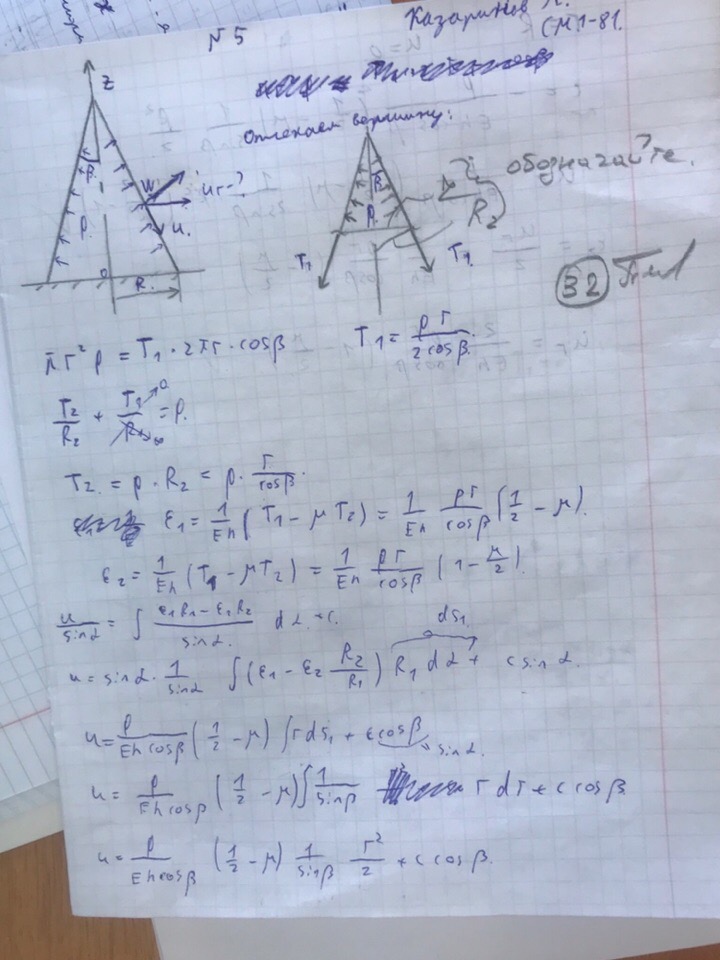 N 5
Казаринов
СМ1-81.
Отсекаем вершину:
обозначайте.
Z
β
W
u_r - ?
u.
p.
0
R.
β
p.
R_2
T_1
T_1
32
πr²p = T_1 · 2πr · cosβ
T_1 = pr / (2cosβ).
T_2/R_2 + T_1/R_1 = p.
T_2 = p · R_2 = p · r/cosβ.
ε_1 = 1/(Eh) (T_1 - μT_2) = 1/(Eh) pr/cosβ (1/2 - μ).
ε_2 = 1/(Eh) (T_1 - μT_2) = 1/(Eh) pr/cosβ (1 - μ/2).
u/sinα = ∫ (ε_1R_1 - ε_2R_2)/sinα. dα + c.
ds_1
u = sinα · 1/sinα ∫(ε_1 - ε_2 R_2/R_1) R_1 dα + c sinα.
u = p/(Eh cosβ) (1/2 - μ) ∫r ds_1 + c cosβ → sinα.
u = p/(Eh cosβ) (1/2 - μ) ∫ 1/sinβ r dr + c cosβ
u = p/(Eh cosβ) (1/2 - μ) 1/sinβ r²/2 + c cosβ.